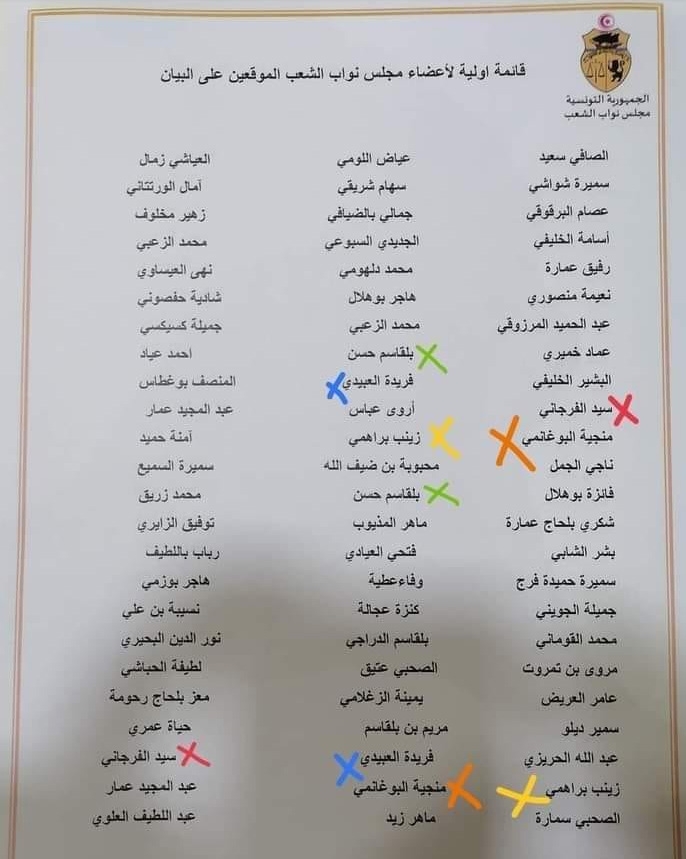 الجمهورية التونسية
مجلس نواب الشعب
قائمة اولية لأعضاء مجلس نواب الشعب الموقعين على البيان
الصافي سعيد
سميرة شواشي
عصام البرقوقي
أسامة الخليفي
رفيق عمارة
نعيمة منصوري
عبد الحميد المرزوقي
عماد خميري
البشير الخليفي
سيد الفرجاني
منجية البوغانمي
ناجي الجمل
فائزة بوهلال
شكري بلحاج عمارة
بشر الشابي
سميرة حميدة فرج
جميلة الجويني
محمد القوماني
مروى بن تمروت
عامر العريض
سمير ديلو
عبد الله الحريزي
زينب براهمي
الصحبي سمارة
عياض اللومي
سهام شريقي
جمالي بالضيافي
الجديدي السبوعي
محمد دلهومي
هاجر بوهلال
محمد الزعبي
بلقاسم حسن
فريدة العبيدي
أروى عباس
زينب براهمي
محبوبة بن ضيف الله
بلقاسم حسن
ماهر المذيوب
فتحي العيادي
وفاءعطية
كنزة عجالة
بلقاسم الدراجي
الصحبي عتيق
يمينة الزغلامي
مريم بن بلقاسم
فريدة العبيدي
منجية البوغانمي
ماهر زيد
العياشي زمال
آمال الورتتاني
زهير مخلوف
محمد الزعبي
نهى العيساوي
شادية حفصوني
جميلة كسيكسي
احمد عياد
المنصف بوغطاس
عبد المجيد عمار
آمنة حميد
سميرة السميع
محمد زريق
توفيق الزايري
رباب باللطيف
هاجر بوزمي
نسيبة بن علي
نور الدين البحيري
لطيفة الحباشي
معز بلحاج رحومة
حياة عمري
سيد الفرجاني
عبد المجيد عمار
عبد اللطيف العلوي